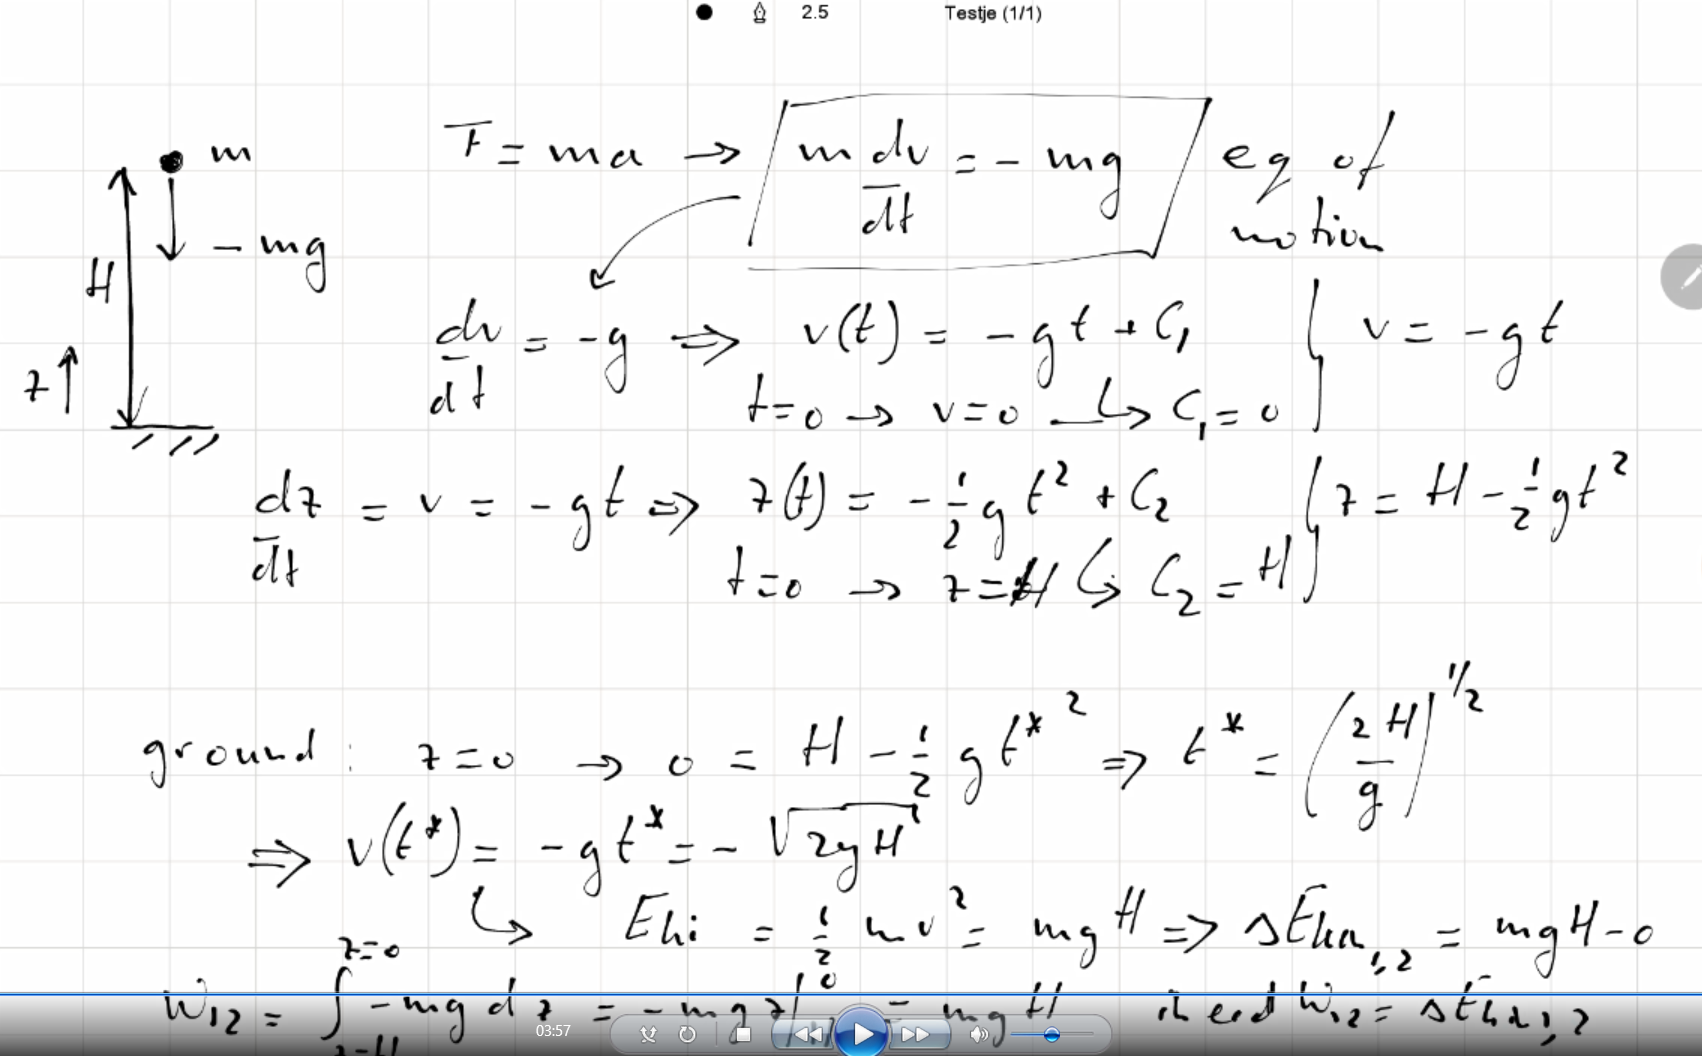 2.5 Testje (1/1)
m
- mg
H
z
F = ma → m dv/dt = - mg eq of motion
dv/dt = -g ⇒ v(t) = - g t + C₁ v = - g t
t=0 → v=0 ↳ C₁ = 0
dz/dt = v = - g t ⇒ z(t) = - ½ g t² + C₂ z = H - ½ g t²
t=0 → z=H ↳ C₂ = H
ground : z=0 → 0 = H - ½ g t*² ⇒ t* = (2H/g)^1/2
⇒ v(t*) = - g t* = - √2gH
↳ Eki = ½ m v² = mgH ⇒ ΔEkin₁,₂ = mgH - 0
W₁₂ = ∫_{z=H}^{z=0} -mg dz = - mg z|_H^0 = mgH indeed W₁₂ = ΔEkin₁,₂
03:57